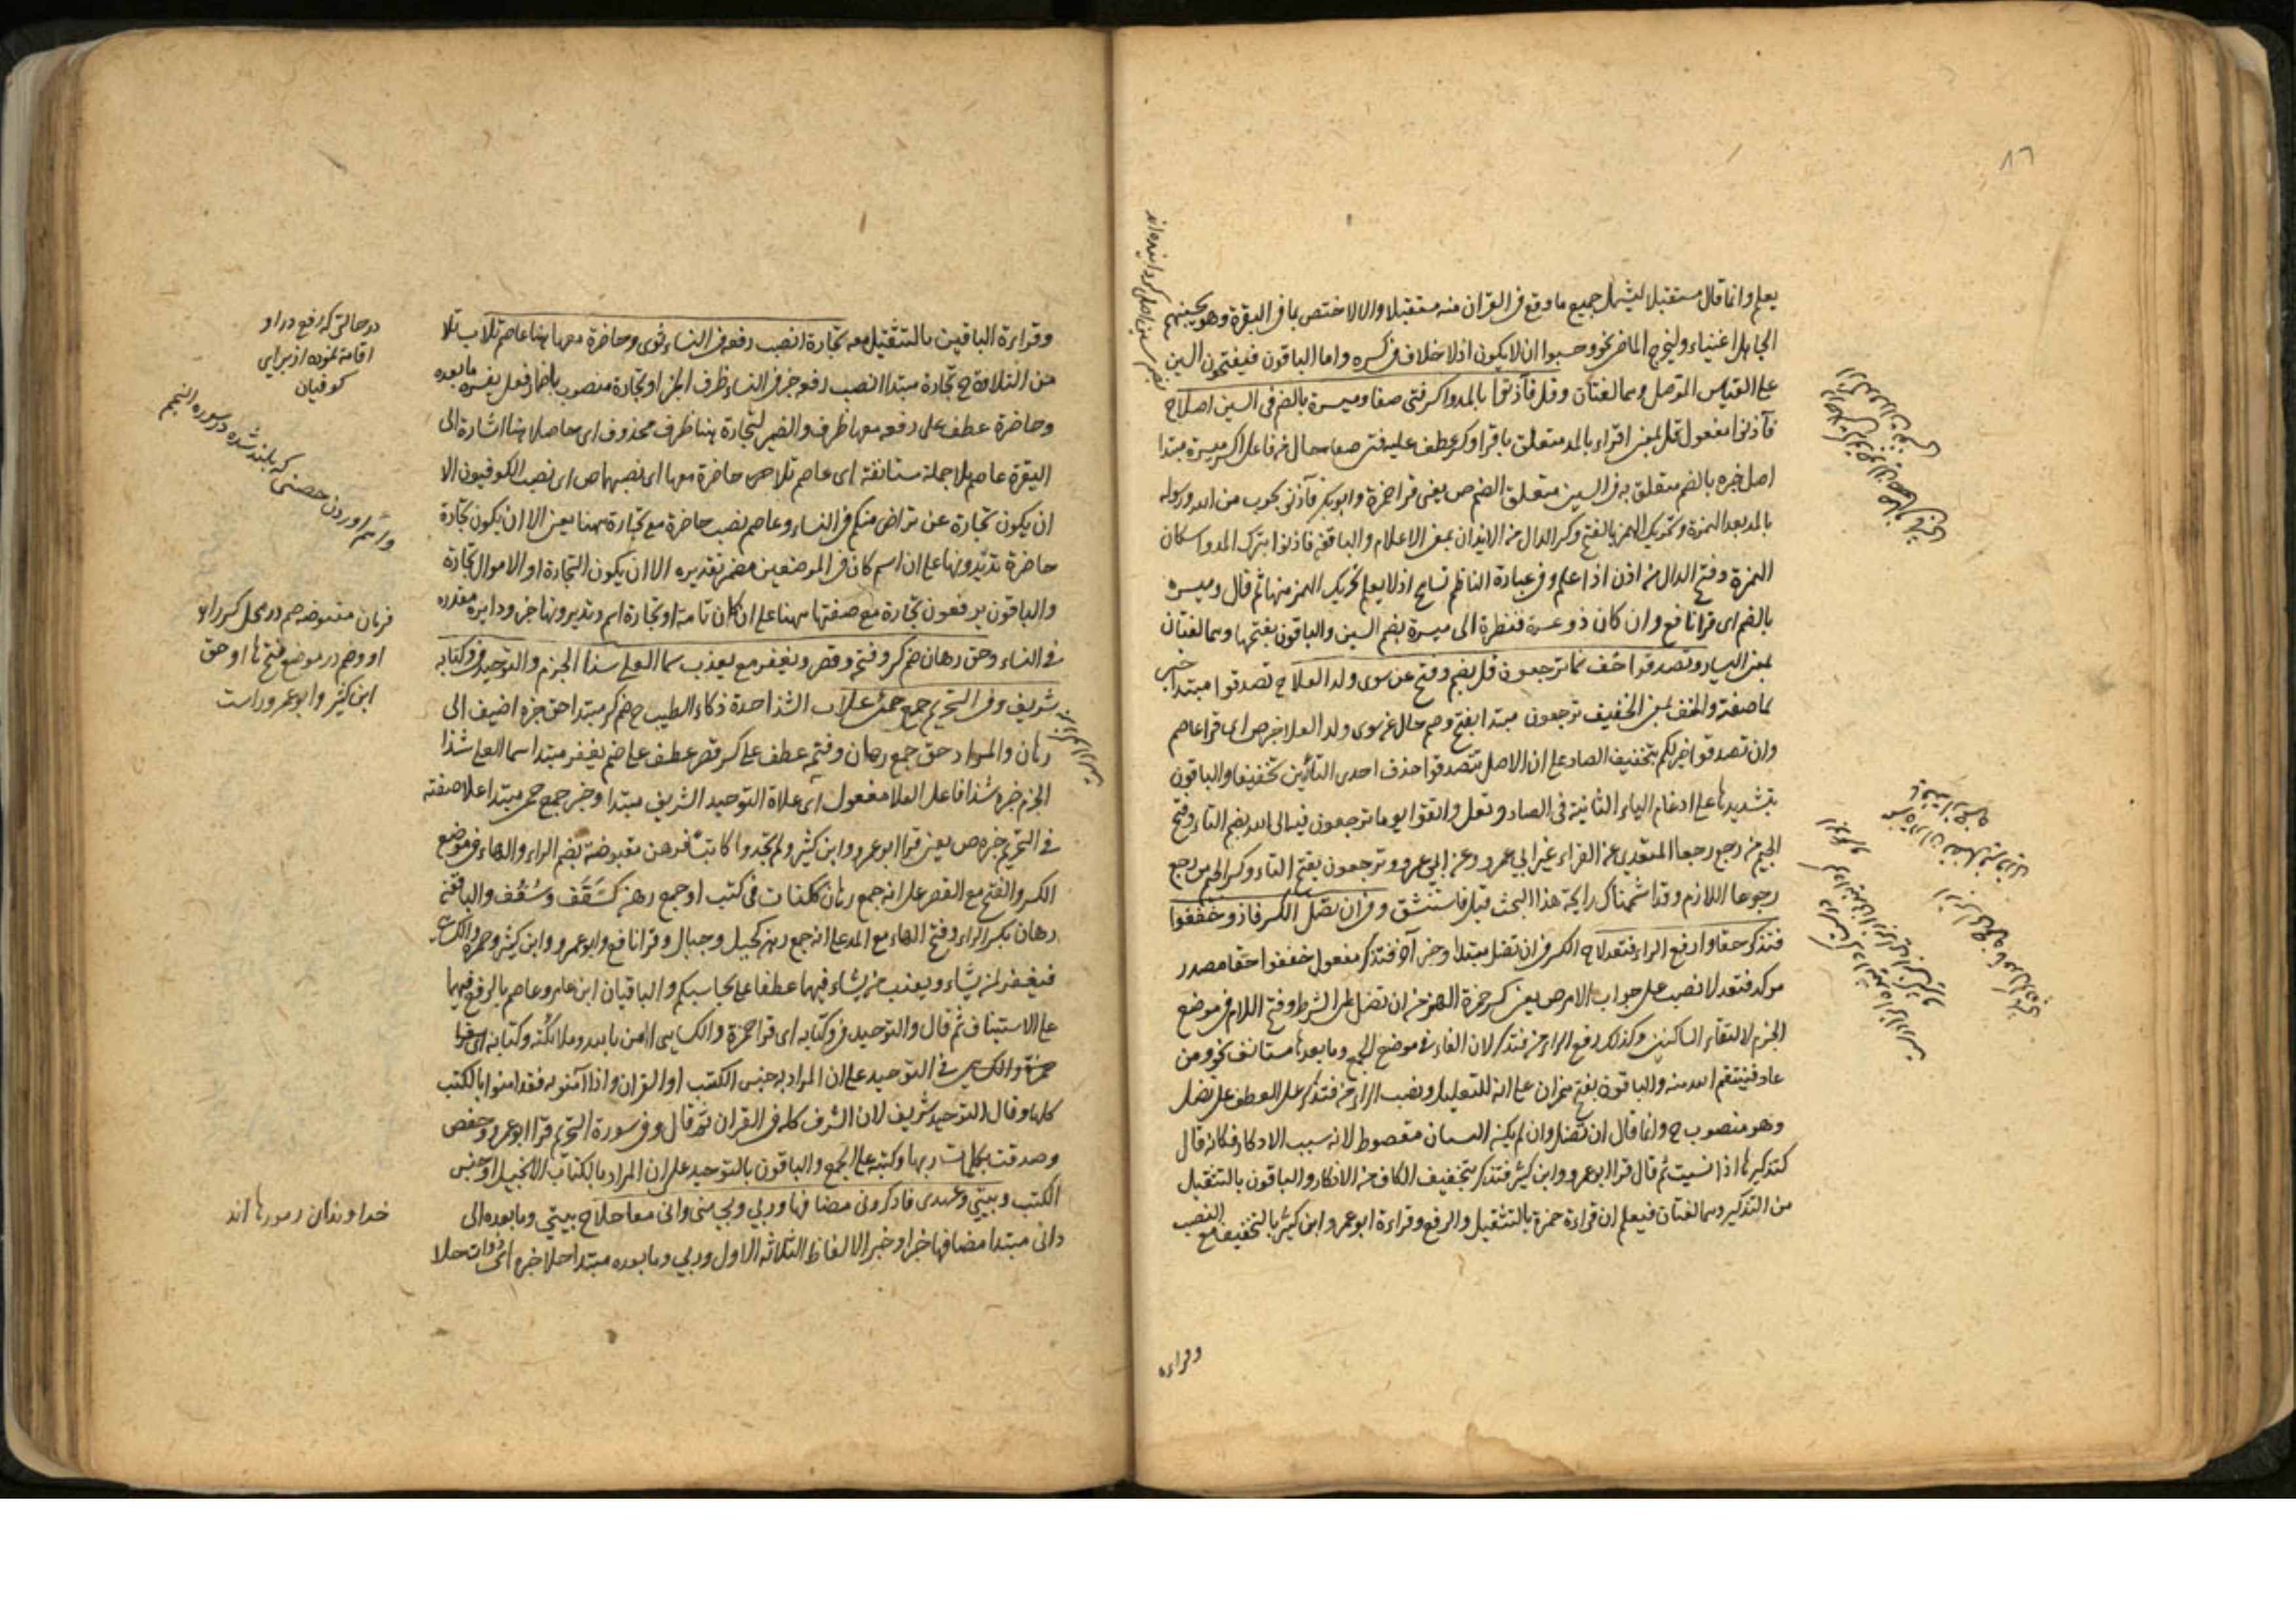 ٨٦
يعلم وانما قال مستقبلا ليشمل جميع ما وقع في القران منه مستقبلا والا لاختص بما في البقرة وهو يحسبهم
الجاهل اغنياء وليخرج الماضي نحو وحسبوا ان لا يكون اذ لا خلاف في كسره واما الباقون فيفتحون السين
على القياس الموصل وهما لغتان وقل فآذنوا بالمد واكسر فتى صفا وميسرة بالضم في السين اصلا ح
فآذنوا مفعول قل بمعنى اقراء بالمد متعلق باقرا وكسر عطف عليه فتى صفا حال من فاعل اكسر ميسرة مبتدا
اصل خبره بالضم متعلق به في السين متعلق الضم ص يعني قرا حمزة وابوبكر فآذنوا بحرب من الله ورسوله
بالمد بعد الهمزة وتحريك الهمز بالفتح وكسر الذال من الايذان بمعنى الاعلام والباقون فاذنوا بترك المد واسكان
الهمزة وفتح الذال من اذن اذا علم وفي عبارة الناظم تسامح اذ لا يعلم تحريك الهمز منها ثم قال وميسرة
بالضم اى قرا نافع وان كان ذو عسرة فنظرة الى ميسرة بضم السين والباقون بفتحها وهما لغتان
بمعنى اليسار وتصدقوا خف نما ترجعون قل بضم وفتح عن سوى ولد العلا ح تصدقوا مبتدا خبر
نما صفته والخف بمعنى الخفيف ترجعون مبتدا بفتح وضم حال عن سوى ولد العلا خبر ص اى قرا عاصم
وان تصدقوا خير لكم بتخفيف الصاد على ان الاصل تتصدقوا حذف احدى التائين تخفيفا والباقون
بتشديدها على ادغام التاء الثانية في الصاد ونقل واتقوا يوما ترجعون فيه الى الله بضم التاء وفتح
الجيم من رجع رجعا المتعدي عن القراء غير ابي عمرو وعن ابي عمرو وترجعون بفتح التاء وكسر الجيم من رجع
رجوعا اللازم وقد اشممناك رايحة هذا البحث قبل فاستنشق وفي ان تضل الكسر فاز وخففوا
فتذكر حقا وارفع الراء فتعدلا ح الكسر في ان تضل مبتدا وخبر آخر فتذكر مفعول خففوا حقا مصدر
موكد فتعدلا نصب على جواب الامر ص يعني كسر حمزة الهمز من ان تضل على الشرط وفتح اللام في موضع
الجزم لالتقاء الساكنين وكذلك رفع الراء من فتذكر لان الفاء في موضع الجمع وما بعدها مستانف نحو ومن
عاد فينتقم الله منه والباقون بفتح همز ان على انه للتعليل ونصب الراء من فتذكر على العطف على تضل
وهو منصوب ح وانما قال ان تضل وان لم يكن النسيان مقصوط لانه سبب الاذكار فكانه قال
كتذكيرها اذا نسيت ثم قال قرا ابو عمرو وابن كثير فتذكر بتخفيف الكاف من الاذكار والباقون بالتثقيل
من التذكير وهما لغتان فيعلم ان قراءة حمزة بالتثقيل والرفع وقراءة ابو عمرو وابن كثير بالتخفيف مع النصب
وقراءة
وقراءة الباقين بالتثقيل معه تجارة انصب رفعه في النساء ثوى وحاضرة معها هنا عاصم تلا ب تلا
من التلاوة ح تجارة مبتدا انصب رفعه خبر في النساء ظرف الخبر او تجارة منصوب باضمار فعل يفسره ما بعده
وحاضرة عطف على رفعه معها ظرف والضمير لتجارة هنا ظرف محذوف اى حاصلا هنا اشارة الى
البقرة عاصم تلا جملة مستانفة اى عاصم تلا حاضرة معها اى نصبهما ص اى نصب الكوفيون الا
ان يكون تجارة عن تراض منكم في النساء وعاصم نصب حاضرة مع تجارة ههنا يعني الا ان يكون تجارة
حاضرة تديرونها على ان اسم كان في الموضعين مضمر تقديره الا ان يكون التجارة او الاموال تجارة
والباقون يرفعون تجارة مع صفتها ههنا على ان كان تامة او تجارة اسم وتديرونها خبر ودايرة مقدره
في النساء وحق رهان ضم كسر وفتحة وقصر ويغفر مع يعذب سما العلى شذا الجزم والتوحيد في وكتابه
شريف وفي التحريم جمع حمى علا ب الشذا حدة ذكاء الطيب ح ضم كسر مبتدا حق خبره اضيف الى
رهان والمراد حق جمع رهان وفتحه عطف على كسر قصر عطف على ضم يغفر مبتدا سما العلى شذا
الجزم خبره شذا فاعل العلا مفعول اى علاه التوحيد الشريف مبتدا وخبر جمع حمى مبتدا علا صفته
في التحريم خبره ص يعني قرا ابو عمرو وابن كثير ولم تجدوا كاتبا فرهن مقبوضة بضم الراء والهاء في موضع
الكسر والفتح مع القصر على انه جمع رهان ككتاب في كتب او جمع رهن كسَقَف وسُقُف والباقون
رهان بكسر الراء وفتح الهاء مع المد على انه جمع رهن كحبل وحبال وقرا نافع وابو عمرو وابن كثير وحمزة والكسائي
فيغفر لمن يشاء ويعذب من يشاء فيهما عطفا على يحاسبكم والباقيان ابن عامر وعاصم بالرفع فيهما
على الاستيناف ثم قال والتوحيد في وكتابه اى قرا حمزة والكسايي امن بالله وملائكته وكتابه اى قرا
حمزة والكسايي في التوحيد على ان المراد به جنس الكتب او القران واذا آمنوا به فقد امنوا بالكتب
كلها وقال التوحيد شريف لان الشرف كله في القران ثم قال وفي سورة التحريم قرا ابو عمرو وحفص
وصدقت بكلمات ربها وكتبه على الجمع والباقون بالتوحيد على ان المراد بالكتاب الانجيل او جنس
الكتب وبيتي وعهدى فاذكروني مضافها وربي وبي مني واني معا حلا ح بيتي وما بعده الى
وانى مبتدا مضافها خبر او خبر الالفاظ الثلاثة الاول وربي وما بعده مبتدا حلا خبره اى ذوات حلا
در حالتي كه رفع در او
اقامة نموده از براى
كوفيان
فرهان مقبوضه ضم در محل كسر را و
او وضم در موضع فتح ها او حق
ابن كثير وابو عمرو راست
خداوندان رمورها اند